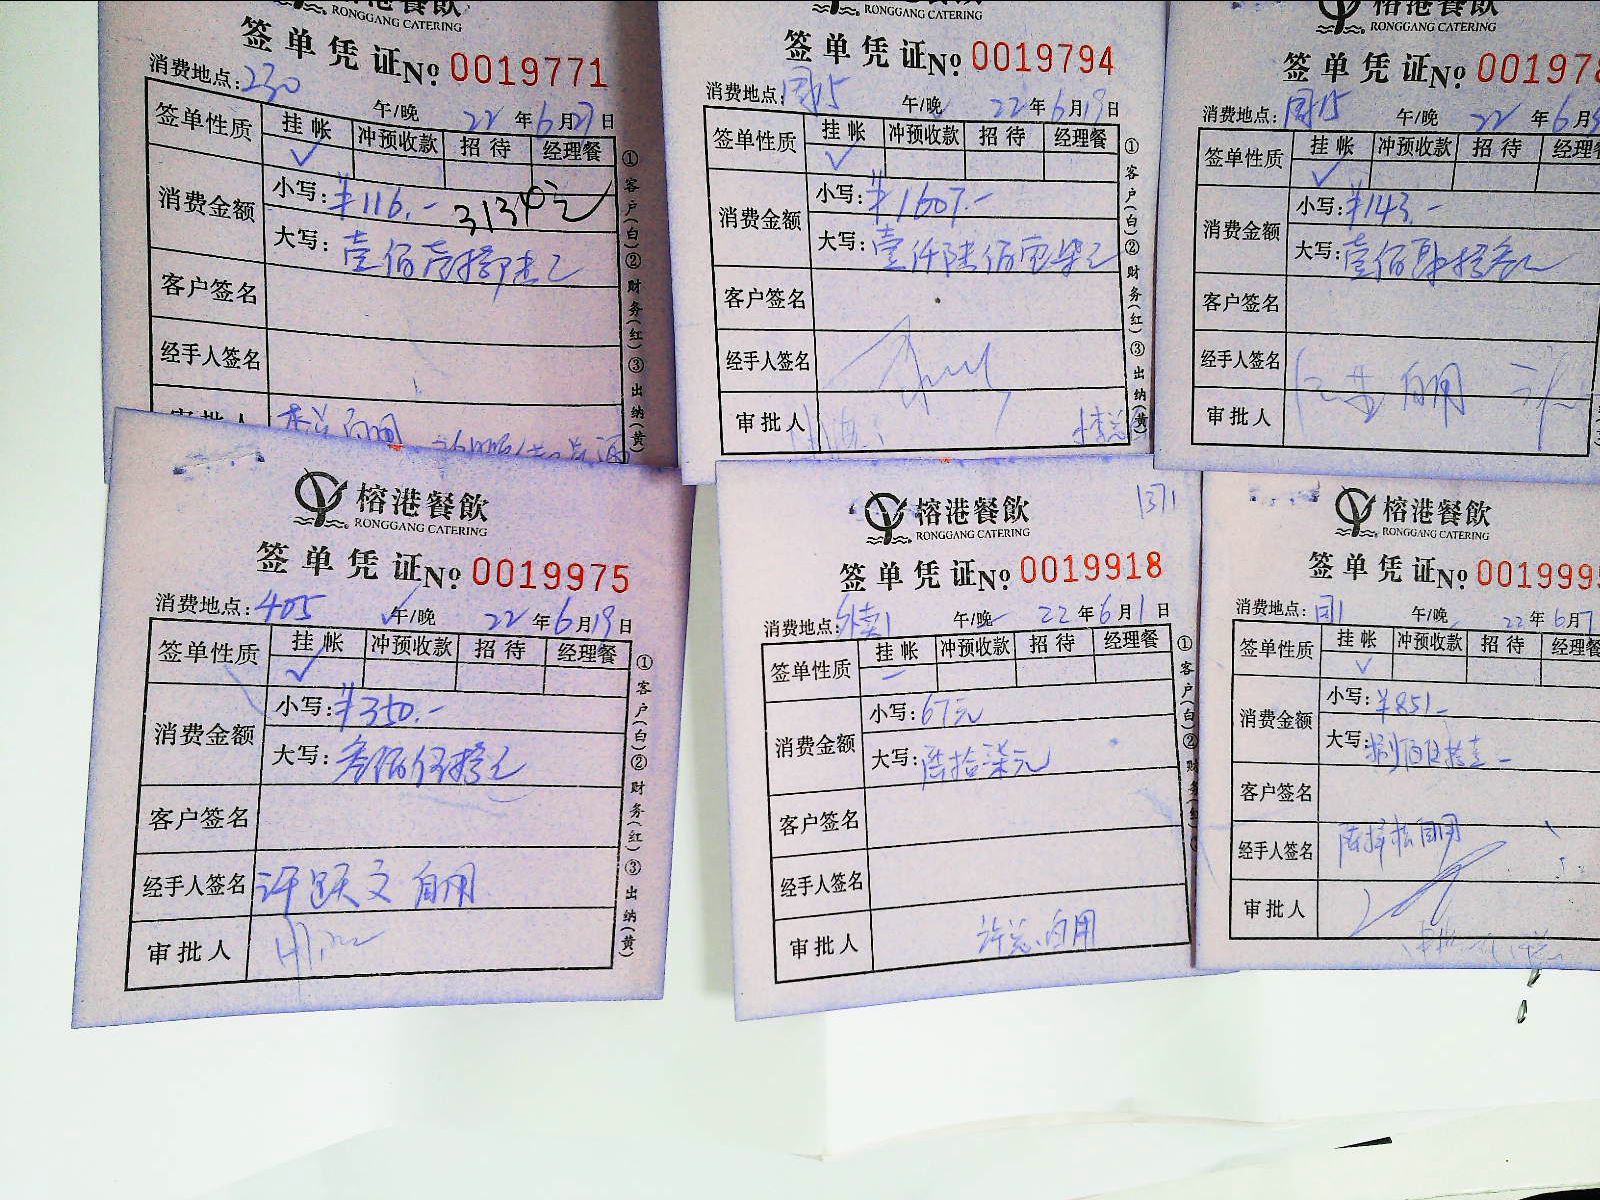 榕港餐飲
RONGGANG CATERING
签单凭证No 0019771
消费地点:230 午/晚 22年6月27日
签单性质 挂帐 冲预收款 招待 经理餐
✓
消费金额 小写:¥116.- 3134元
大写:壹佰壹拾陆元
客户签名
经手人签名
审批人
①客户(白)②财务(红)③出纳(黄)
RONGGANG CATERING
签单凭证No 0019794
消费地点:团15 午/晚 22年6月19日
签单性质 挂帐 冲预收款 招待 经理餐
✓
消费金额 小写:¥1607.-
大写:壹仟陆佰零柒元
客户签名
经手人签名
审批人
①客户(白)②财务(红)③出纳(黄)
榕港餐飲
RONGGANG CATERING
签单凭证No 001978
消费地点:团15 午/晚 22年6月
签单性质 挂帐 冲预收款 招待 经理
✓
消费金额 小写:¥143.-
大写:壹佰肆拾叁元
客户签名
经手人签名 自用
审批人
榕港餐飲
RONGGANG CATERING
签单凭证No 0019975
消费地点:405 午/晚 22年6月19日
签单性质 挂帐 冲预收款 招待 经理餐
✓
消费金额 小写:¥350.-
大写:叁佰伍拾元
客户签名
经手人签名 许跃文 自用
审批人
①客户(白)②财务(红)③出纳(黄)
1371
榕港餐飲
RONGGANG CATERING
签单凭证No 0019918
消费地点:外卖1 午/晚 22年6月1日
签单性质 挂帐 冲预收款 招待 经理餐
消费金额 小写:67元
大写:陆拾柒元
客户签名
经手人签名
审批人 许总自用
①客户(白)②财务(红)
榕港餐飲
RONGGANG CATERING
签单凭证No 001999
消费地点:团1 午/晚 22年6月7
签单性质 挂帐 冲预收款 招待 经理餐
✓
消费金额 小写:¥851-
大写:捌佰伍拾壹
客户签名
经手人签名 自用
审批人